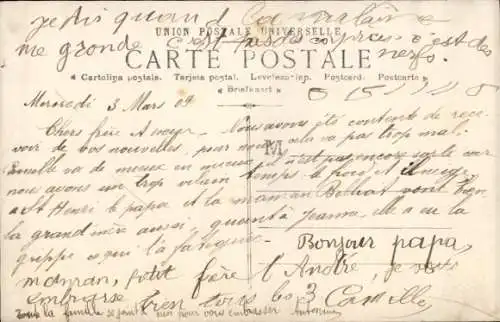 je dis quand
me gronde c'est pas des caprices c'est des nerfs.
UNION POSTALE UNIVERSELLE
CARTE POSTALE
Cartolina postale. Tarjeta postal. Postcard. Postcarte
Briefkaart
Mercredi 3 Mars 09
Chers frère & sœur. Nous avons été contents de rece-
voir de vos nouvelles, pour nous cela va pas trop mal.
va de mieux en mieux il n'est pas encore sorti car
M
nous avons un trop vilain temps le froid et
à St Henri le papa et la maman vont bien
la grand mère aussi, quant à Jeanne elle a eu la
grippe ce qui l'a fatiguée
Bonjour papa,
maman, petit frère l'André, je vous
embrasse bien tous les 3 Camille
Toute la famille se joint à moi pour vous embrasser Antonine